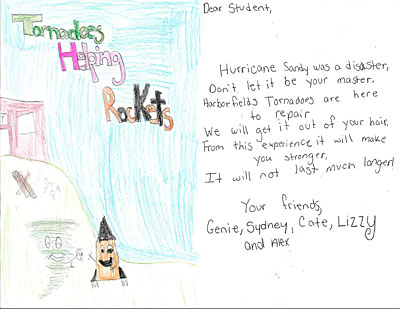 Tornadoes
Helping
Rockets
Dear Student,
Hurricane Sandy was a disaster,
Don't let it be your master.
Harborfields Tornadoes are here
to repair
We will get it out of your hair.
From this experience it will make
you stronger,
It will not last much longer!
Your friends,
Genie, Sydney, Cate, Lizzy
and Alex